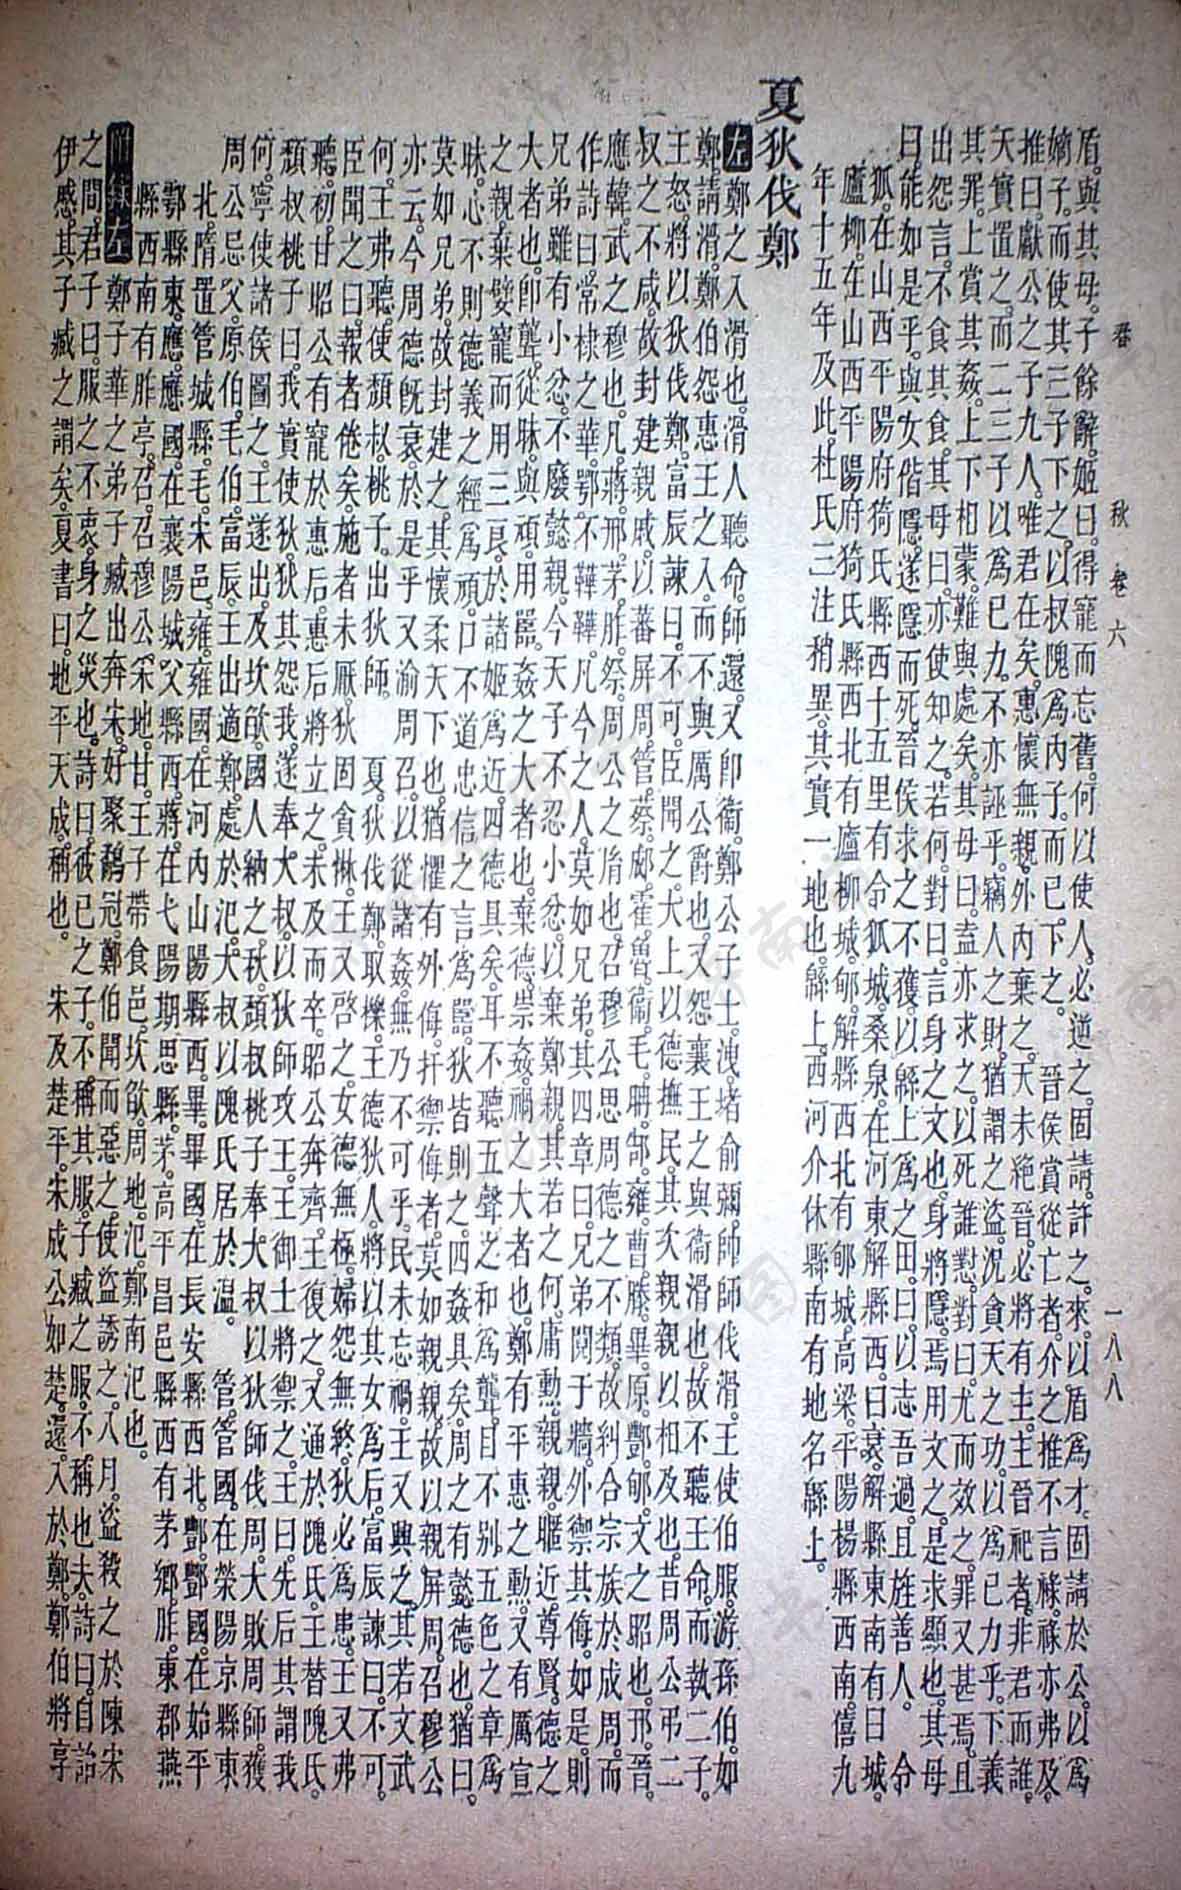 春 秋 卷六 一八八
盾。與其母。子餘辭。姬曰。得寵而忘舊。何以使人。必逆之。固請。許之。來。以盾爲才。固請於公。以爲
嫡子。而使其三子下之。以叔隗爲內子。而已下之。 晉侯賞從亡者。介之推不言祿。祿亦弗及。
推曰。獻公之子九人。唯君在矣。惠懷無親。外內棄之。天未絕晉。必將有主。主晉祀者。非君而誰。
天實置之。而二三子以爲己力。不亦誣乎。竊人之財。猶謂之盜。況貪天之功。以爲己力乎。下義
其罪。上賞其姦。上下相蒙。難與處矣。其母曰。盍亦求之。以死誰懟。對曰。尤而效之。罪又甚焉。且
出怨言。不食其食。其母曰。亦使知之。若何。對曰。言身之文也。身將隱。焉用文之。是求顯也。其母
曰。能如是乎。與女偕隱。遂隱而死。晉侯求之不獲。以緜上爲之田。曰。以志吾過。且旌善人。 令
狐。在山西平陽府猗氏縣西十五里有令狐城。桑泉。在河東解縣西。臼衰。解縣東南有臼城。
廬柳。在山西平陽府猗氏縣西北有廬柳城。郇。解縣西北有郇城。高梁。平陽楊縣西南。僖九
年十五年及此。杜氏三注稍異。其實一地也。緜上。西河介休縣南有地名緜上。
夏狄伐鄭
左 鄭之入滑也。滑人聽命。師還。又卽衞。鄭公子士洩。堵俞彌。帥師伐滑。王使伯服。游孫伯。如
鄭。請滑。鄭伯怨惠王之入。而不與厲公爵也。又怨襄王之與衞滑也。故不聽王命。而執二子。
王怒。將以狄伐鄭。富辰諫曰。不可。臣聞之。大上以德撫民。其次親親以相及也。昔周公弔二
叔之不咸。故封建親戚。以蕃屏周。管。蔡。郕。霍。魯。衞。毛。聃。郜。雍。曹。滕。畢。原。酆。郇。文之昭也。邘。晉。
應。韓。武之穆也。凡。蔣。邢。茅。胙。祭。周公之胤也。召穆公思周德之不類。故糾合宗族於成周。而
作詩曰。常棣之華。鄂不韡韡。凡今之人。莫如兄弟。其四章曰。兄弟鬩于牆。外禦其侮。如是。則
兄弟雖有小忿。不廢懿親。今天子不忍小忿。以棄鄭親。其若之何。庸勳。親親。暱近。尊賢。德之
大者也。卽聾。從昧。與頑。用嚚。姦之大者也。棄德。崇姦。禍之大者也。鄭有平惠之勳。又有厲宣
之親。棄嬖寵而用三良。於諸姬爲近。四德具矣。耳不聽五聲之和爲聾。目不別五色之章爲
昧。心不則德義之經爲頑。口不道忠信之言爲嚚。狄皆則之。四姦具矣。周之有懿德也。猶曰。
莫如兄弟。故封建之。其懷柔天下也。猶懼有外侮。扞禦侮者。莫如親親。故以親屏周。召穆公
亦云。今周德旣衰。於是乎又渝周召。以從諸姦。無乃不可乎。民未忘禍。王又興之。其若文武
何。王弗聽。使頹叔桃子。出狄師。 夏。狄伐鄭。取櫟。王德狄人。將以其女爲后。富辰諫曰。不可。
臣聞之曰。報者倦矣。施者未厭。狄固貪惏。王又啓之。女德無極。婦怨無終。狄必爲患。王又弗
聽。初。甘昭公有寵於惠后。惠后將立之。未及而卒。昭公奔齊。王復之。又通於隗氏。王替隗氏。
頹叔桃子曰。我實使狄。狄其怨我。遂奉大叔。以狄師攻王。王御士將禦之。王曰。先后其謂我
何。寧使諸侯圖之。王遂出。及坎欿。國人納之。秋。頹叔桃子奉大叔以狄師伐周。大敗周師。獲
周公忌父。原伯。毛伯。富辰。王出適鄭。處於氾。大叔以隗氏居於溫。 管。管國。在滎陽京縣東
北。隋置管城縣。毛。宋邑。雍。雍國。在河內山陽縣西。畢。畢國。在長安縣西北。酆。酆國。在始平
鄠縣東。應。應國。在襄陽城父縣西。蔣。在弋陽期思縣。茅。高平昌邑縣西有茅鄉。胙。東郡燕
縣西南有胙亭。召。召穆公采地。甘。王子帶食邑。坎欿。周地。氾。鄭南氾也。
附錄左 鄭子華之弟子臧出奔宋。好聚鷸冠。鄭伯聞而惡之。使盜誘之。八月。盜殺之於陳宋
之間。君子曰。服之不衷。身之災也。詩曰。彼己之子。不稱其服。子臧之服。不稱也夫。詩曰。自詒
伊慼。其子臧之謂矣。夏書曰。地平天成。稱也。 宋及楚平。宋成公如楚。還。入於鄭。鄭伯將享